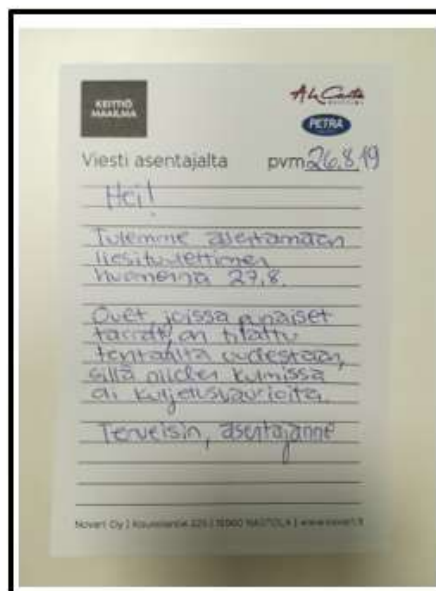 KEITTIÖ
MAAILMA
A la Carte
PETRA
Viesti asentajalta pvm 26.8.19
Hei!
Tulemme asentamaan
liesituulettimen
huomenna 27.8.
Ovet, joissa punaiset
tarrat, on tilattu
tehtaalta uudestaan,
sillä niiden kulmissa
oli kuljetusvaurioita.
Terveisin, asentajanne
Novart Oy | Kouvolantie 225 | 15560 NASTOLA | www.novart.fi